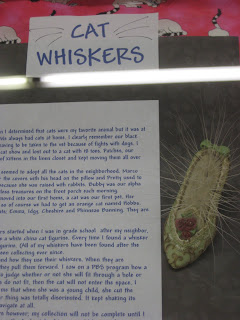 CAT
WHISKERS
I determined that cats were my favorite animal but it was at
always had cats at home. I clearly remember our black
having to be taken to the vet because of fights with dogs. I
cat show and lost out to a cat with 19 toes. Patches, our
of kittens in the linen closet and kept moving them all over
seemed to adopt all the cats in the neighborhood. Marco
the covers with his head on the pillow and Pretty used to
because she was raised with rabbits. Bubby was our alpha
treasures on the front porch each morning.
moved into our first home, a cat was our first pet. Her
so of course we had to get an orange cat named Bubba.
Emma, Izgy, Cheshire and Phineous Manning. They are
started when I was in grade school. after my neighbor,
a white china cat figurine. Every time I found a whisker
figurine. (All of my whiskers have been found after the
been collecting ever since.
and how they use their whiskers. When they are
they pull them forward. I saw on a PBS program how a
judge whether or not she will fit through a hole or
do not fit, then the cat will not enter the space. I
me that when she was a young child, she cut the
thing was totally disoriented. It kept shaking its
navigate at all.
however, my collection will not be complete until I